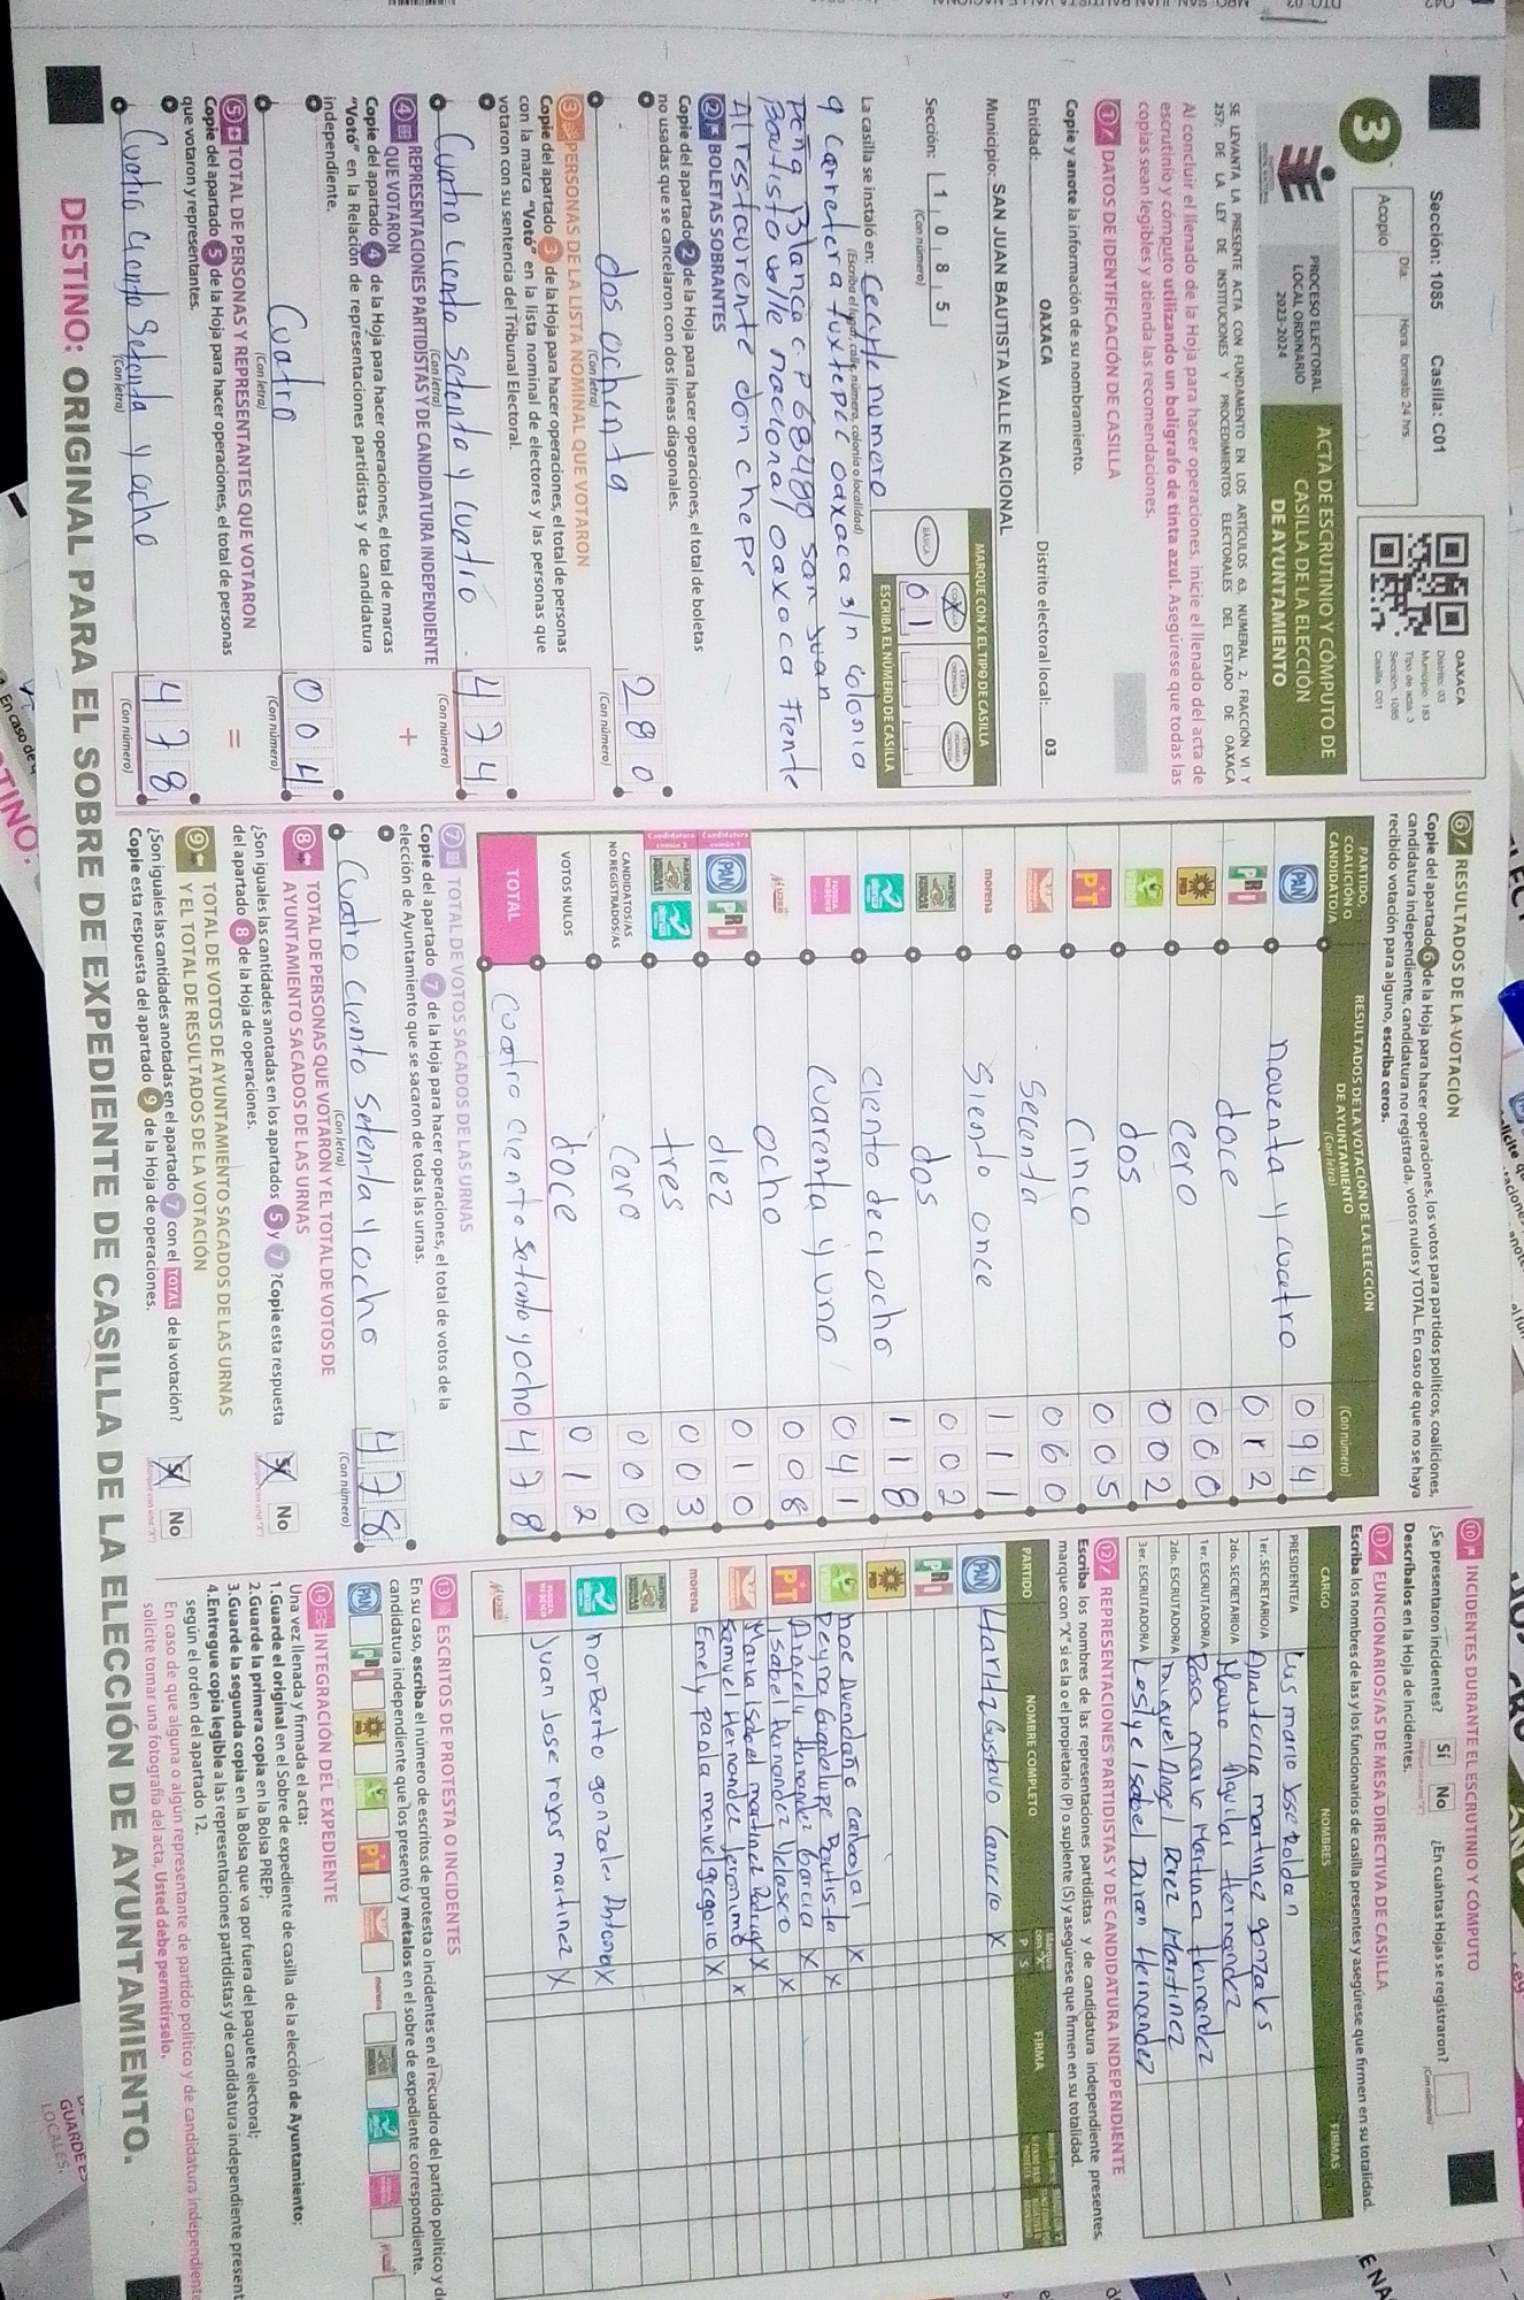 Sección: 1085 Casilla: C01
3
Acopio
Día:
Hora: formato 24 hrs.
OAXACA
Distrito: 03
Municipio: 183
Tipo de acta: 3
Sección: 1085
Casilla: C01
PROCESO ELECTORAL
LOCAL ORDINARIO
2023-2024
ACTA DE ESCRUTINIO Y CÓMPUTO DE
CASILLA DE LA ELECCIÓN
DE AYUNTAMIENTO
SE LEVANTA LA PRESENTE ACTA CON FUNDAMENTO EN LOS ARTÍCULOS 63, NUMERAL 2, FRACCIÓN VI Y
257; DE LA LEY DE INSTITUCIONES Y PROCEDIMIENTOS ELECTORALES DEL ESTADO DE OAXACA
Al concluir el llenado de la Hoja para hacer operaciones, inicie el llenado del acta de
escrutinio y cómputo utilizando un bolígrafo de tinta azul. Asegúrese que todas las
copias sean legibles y atienda las recomendaciones.
1 DATOS DE IDENTIFICACIÓN DE CASILLA
Copie y anote la información de su nombramiento.
Entidad: OAXACA Distrito electoral local: 03
Municipio: SAN JUAN BAUTISTA VALLE NACIONAL
Sección: 1 0 8 5
(Con número)
MARQUE CON X EL TIPO DE CASILLA
BÁSICA
X
ESCRIBA EL NÚMERO DE CASILLA
0 1
La casilla se instaló en: Cecyte numero
(Escriba el lugar, calle, número, colonia o localidad)
9 Carretera tuxtepec oaxaca s/n colonia
Peña Blanca C.P 68480 San Juan
Bautista valle nacional oaxaca Frente
Al restaurente don chepe
2 BOLETAS SOBRANTES
Copie del apartado 2 de la Hoja para hacer operaciones, el total de boletas
no usadas que se cancelaron con dos líneas diagonales.
dos ochenta 2 8 0
(Con letra) (Con número)
3 PERSONAS DE LA LISTA NOMINAL QUE VOTARON
Copie del apartado 3 de la Hoja para hacer operaciones, el total de personas
con la marca "Votó" en la lista nominal de electores y las personas que
votaron con su sentencia del Tribunal Electoral.
Cuatro ciento setenta y cuatro 4 7 4
(Con letra) (Con número)
4 REPRESENTACIONES PARTIDISTAS Y DE CANDIDATURA INDEPENDIENTE
QUE VOTARON +
Copie del apartado 4 de la Hoja para hacer operaciones, el total de marcas
"Votó" en la Relación de representaciones partidistas y de candidatura
independiente.
Cuatro 0 0 4
(Con letra) (Con número)
5 TOTAL DE PERSONAS Y REPRESENTANTES QUE VOTARON =
Copie del apartado 5 de la Hoja para hacer operaciones, el total de personas
que votaron y representantes.
Cuatro ciento Setenta y ocho 4 7 8
(Con letra) (Con número)
6 RESULTADOS DE LA VOTACIÓN
Copie del apartado 6 de la Hoja para hacer operaciones, los votos para partidos políticos, coaliciones,
candidatura independiente, candidatura no registrada, votos nulos y TOTAL. En caso de que no se haya
recibido votación para alguno, escriba ceros.
PARTIDO,
COALICIÓN O
CANDIDATO/A
RESULTADOS DE LA VOTACIÓN DE LA ELECCIÓN
DE AYUNTAMIENTO
(Con letra) (Con número)
PAN noventa y cuatro 0 9 4
PRI doce 0 1 2
PRD cero 0 0 0
dos 0 0 2
PT Cinco 0 0 5
Secenta 0 6 0
morena Siento once 1 1 1
dos 0 0 2
ciento deciocho 1 1 8
Cuarenta y uno 0 4 1
ocho 0 0 8
PAN PRI diez 0 1 0
tres 0 0 3
CANDIDATOS/AS
NO REGISTRADOS/AS Cero 0 0 0
VOTOS NULOS doce 0 1 2
TOTAL Cuatro ciento setenta y ocho 4 7 8
7 TOTAL DE VOTOS SACADOS DE LAS URNAS
Copie del apartado 7 de la Hoja para hacer operaciones, el total de votos de la
elección de Ayuntamiento que se sacaron de todas las urnas.
Cuatro ciento setenta y ocho 4 7 8
(Con letra) (Con número)
8 TOTAL DE PERSONAS QUE VOTARON Y EL TOTAL DE VOTOS DE
AYUNTAMIENTO SACADOS DE LAS URNAS
¿Son iguales las cantidades anotadas en los apartados 5 y 7 ? Copie esta respuesta
del apartado 8 de la Hoja de operaciones.
Sí No
9 TOTAL DE VOTOS DE AYUNTAMIENTO SACADOS DE LAS URNAS
Y EL TOTAL DE RESULTADOS DE LA VOTACIÓN
¿Son iguales las cantidades anotadas en el apartado 7 con el TOTAL de la votación?
Copie esta respuesta del apartado 9 de la Hoja de operaciones.
Sí No
10 INCIDENTES DURANTE EL ESCRUTINIO Y CÓMPUTO
¿Se presentaron incidentes? Sí No ¿En cuántas Hojas se registraron?
(Con número)
Descríbalos en la Hoja de Incidentes.
11 FUNCIONARIOS/AS DE MESA DIRECTIVA DE CASILLA
Escriba los nombres de las y los funcionarios de casilla presentes y asegúrese que firmen en su totalidad.
CARGO NOMBRES FIRMAS
PRESIDENTE/A Luis mario Jose roldan
1er. SECRETARIO/A Anastacia martinez gonzales
2do. SECRETARIO/A Mauro Aguilar Hernandez
1er. ESCRUTADOR/A Rosa maria Martina Hernandez
2do. ESCRUTADOR/A miguel Angel Perez Martinez
3er. ESCRUTADOR/A Leslye Isabel Duran Hernandez
12 REPRESENTACIONES PARTIDISTAS Y DE CANDIDATURA INDEPENDIENTE
Escriba los nombres de las representaciones partidistas y de candidatura independiente presentes,
marque con "X" si es la o el propietario (P) o suplente (S) y asegúrese que firmen en su totalidad.
PARTIDO NOMBRE COMPLETO P S FIRMA
PAN Gustavo X
PRI
PRD
noe Avendaño carbajal X
Deyra Guadalupe Bautista X
PT Aracely Hernandez Garcia X
Isabel Hernandez Velasco X
Maria Isabel martinez X
Samuel Hernandez Jeronimo X
morena Emely paola manuel gregorio X
norberto gonzales X
Juan Jose rojas martinez X
13 ESCRITOS DE PROTESTA O INCIDENTES
En su caso, escriba el número de escritos de protesta o incidentes en el recuadro del partido político y d
candidatura independiente que los presentó y métalos en el sobre de expediente correspondiente.
PAN PRI PRD PT morena
14 INTEGRACIÓN DEL EXPEDIENTE
Una vez llenada y firmada el acta:
1.Guarde el original en el Sobre de expediente de casilla de la elección de Ayuntamiento;
2.Guarde la primera copia en la Bolsa PREP;
3.Guarde la segunda copia en la Bolsa que va por fuera del paquete electoral;
4.Entregue copia legible a las representaciones partidistas y de candidatura independiente present
según el orden del apartado 12.
En caso de que alguna o algún representante de partido político y de candidatura independiente
solicite tomar una fotografía del acta, Usted debe permitírselo.
DESTINO: ORIGINAL PARA EL SOBRE DE EXPEDIENTE DE CASILLA DE LA ELECCIÓN DE AYUNTAMIENTO.